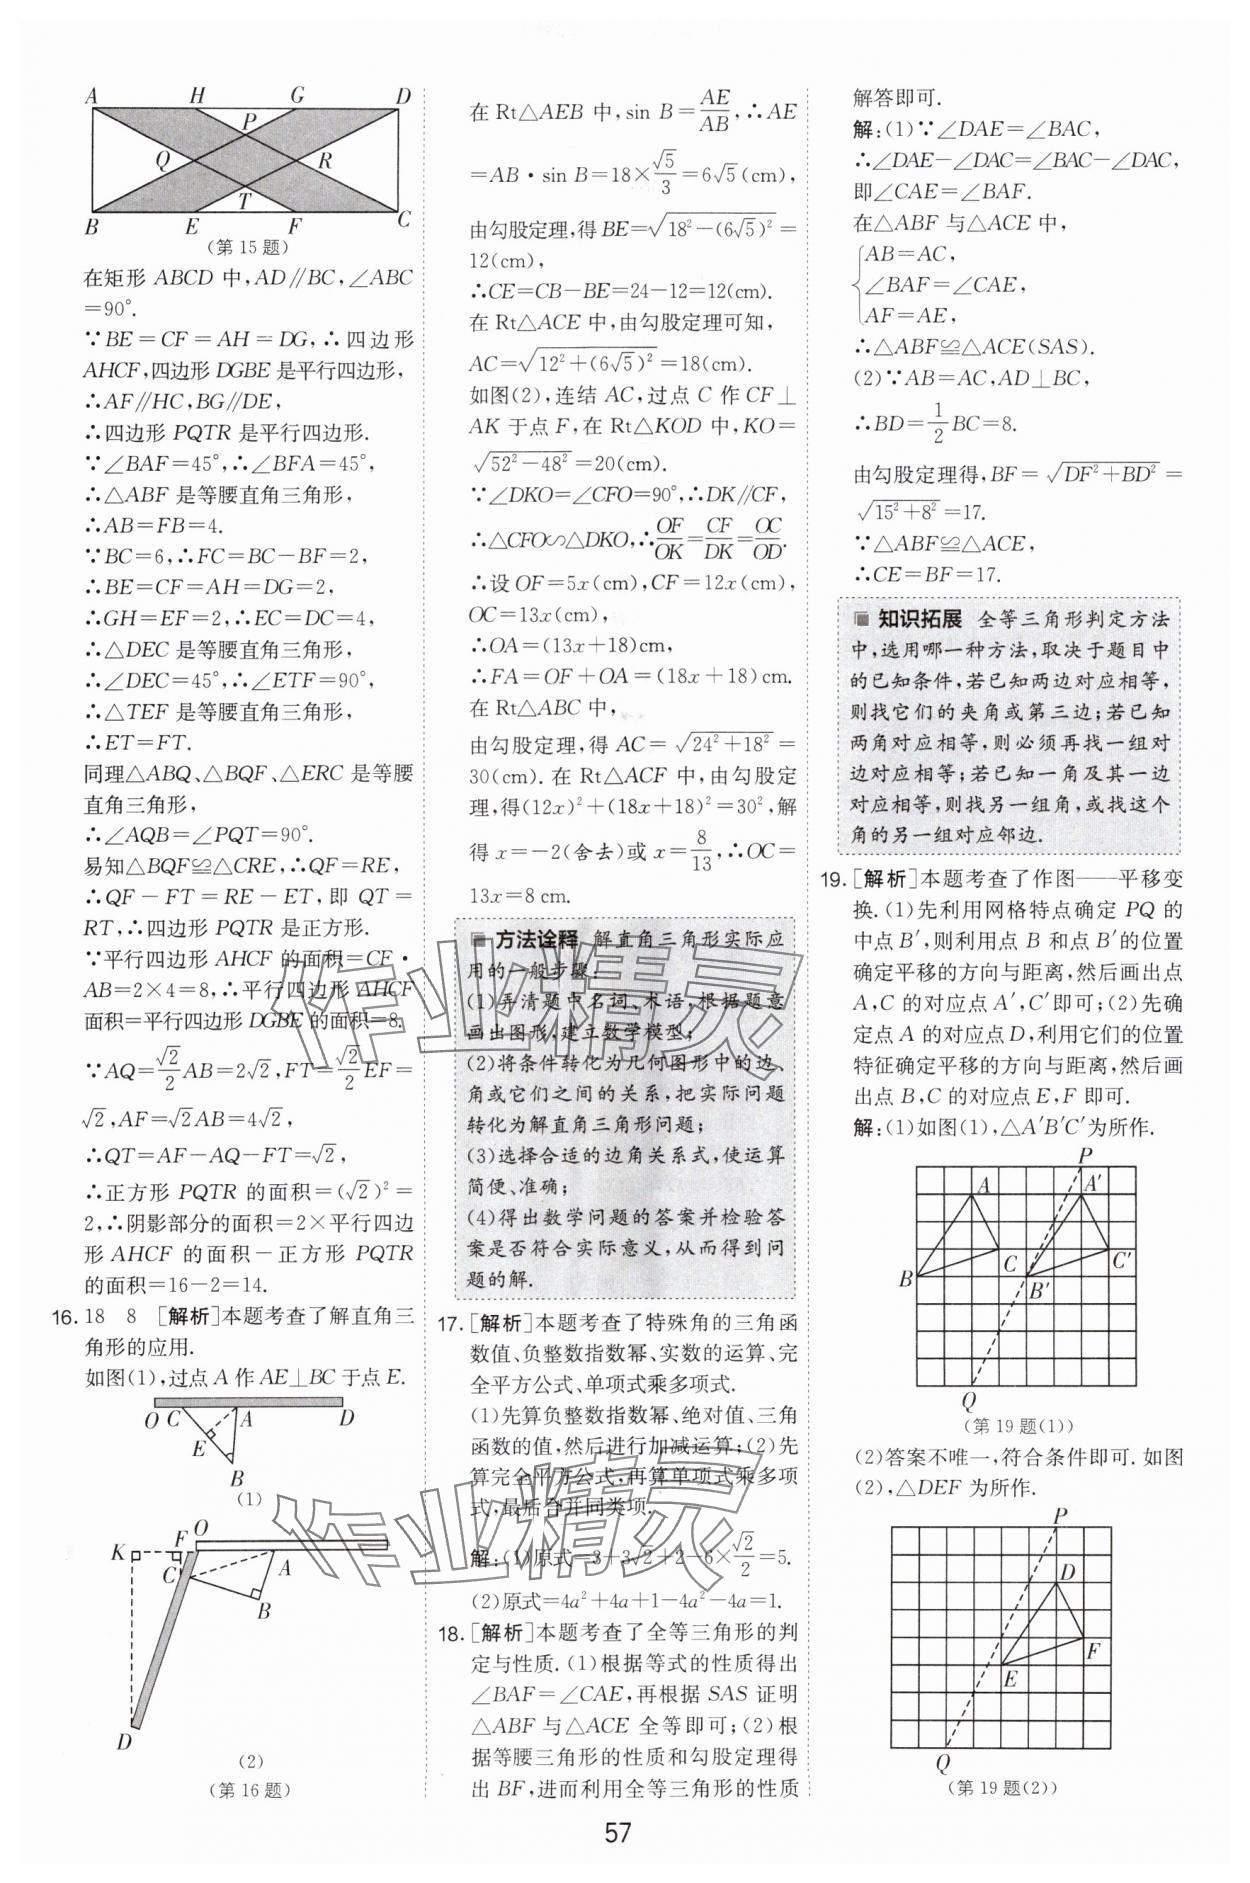 A H G D
P
Q R
T
B E F C
(第15题)
在矩形 ABCD 中,AD∥BC,∠ABC
=90°.
∵BE=CF=AH=DG,∴四边形
AHCF,四边形 DGBE 是平行四边形,
∴AF∥HC,BG∥DE,
∴四边形 PQTR 是平行四边形.
∵∠BAF=45°,∴∠BFA=45°,
∴△ABF 是等腰直角三角形,
∴AB=FB=4.
∵BC=6,∴FC=BC-BF=2,
∴BE=CF=AH=DG=2,
∴GH=EF=2,∴EC=DC=4,
∴△DEC 是等腰直角三角形,
∴∠DEC=45°,∴∠ETF=90°,
∴△TEF 是等腰直角三角形,
∴ET=FT.
同理△ABQ、△BQF、△ERC 是等腰
直角三角形,
∴∠AQB=∠PQT=90°.
易知△BQF≌△CRE,∴QF=RE,
∴QF-FT=RE-ET,即 QT=
RT,∴四边形 PQTR 是正方形.
∵平行四边形 AHCF 的面积=CF·
AB=2×4=8,∴平行四边形 AHCF
面积=平行四边形 DGBE 的面积=8.
∵AQ=√2/2 AB=2√2,FT=√2/2 EF=
√2,AF=√2AB=4√2,
∴QT=AF-AQ-FT=√2,
∴正方形 PQTR 的面积=(√2)²=
2,∴阴影部分的面积=2×平行四边
形 AHCF 的面积-正方形 PQTR
的面积=16-2=14.
16. 18 8 [解析]本题考查了解直角三
角形的应用.
如图(1),过点 A 作 AE⊥BC 于点 E.
O C A D
E
B
(1)
K F O
C A
B
D
(2)
(第16题)
在 Rt△AEB 中,sin B=AE/AB,∴AE
=AB·sin B=18×√5/3=6√5(cm),
由勾股定理,得 BE=√(18²-(6√5)²)=
12(cm),
∴CE=CB-BE=24-12=12(cm).
在 Rt△ACE 中,由勾股定理可知,
AC=√(12²+(6√5)²)=18(cm);
如图(2),连结 AC,过点 C 作 CF⊥
AK 于点 F,在 Rt△KOD 中,KO=
√(52²-48²)=20(cm).
∵∠DKO=∠CFO=90°,∴DK∥CF,
∴△CFO∽△DKO,∴OF/OK=CF/DK=OC/OD.
∴设 OF=5x(cm),CF=12x(cm),
OC=13x(cm),
∴OA=(13x+18)cm,
∴FA=OF+OA=(18x+18)cm.
在 Rt△ABC 中,
由勾股定理,得 AC=√(24²+18²)=
30(cm).在 Rt△ACF 中,由勾股定
理,得(12x)²+(18x+18)²=30²,解
得 x=-2(舍去)或 x=8/13,∴OC=
13x=8 cm.
方法诠释 解直角三角形实际应
用的一般步骤:
(1)弄清题中名词、术语,根据题意
画出图形,建立数学模型;
(2)将条件转化为几何图形中的边、
角或它们之间的关系,把实际问题
转化为解直角三角形问题;
(3)选择合适的边角关系式,使运算
简便、准确;
(4)得出数学问题的答案并检验答
案是否符合实际意义,从而得到问
题的解.
17. [解析]本题考查了特殊角的三角函
数值、负整数指数幂、实数的运算、完
全平方公式、单项式乘多项式.
(1)先算负整数指数幂、绝对值、三角
函数的值,然后进行加减运算;(2)先
算完全平方公式,再算单项式乘多项
式,最后合并同类项.
解:(1)原式=3+3√2+2-6×√2/2=5.
(2)原式=4a²+4a+1-4a²-4a=1.
18. [解析]本题考查了全等三角形的判
定与性质.(1)根据等式的性质得出
∠BAF=∠CAE,再根据 SAS 证明
△ABF 与△ACE 全等即可;(2)根
据等腰三角形的性质和勾股定理得
出 BF,进而利用全等三角形的性质
解答即可.
解:(1)∵∠DAE=∠BAC,
∴∠DAE-∠DAC=∠BAC-∠DAC,
即∠CAE=∠BAF.
在△ABF 与△ACE 中,
AB=AC,
∠BAF=∠CAE,
AF=AE,
∴△ABF≌△ACE(SAS).
(2)∵AB=AC,AD⊥BC,
∴BD=1/2 BC=8.
由勾股定理得,BF=√(DF²+BD²)=
√(15²+8²)=17.
∵△ABF≌△ACE,
∴CE=BF=17.
知识拓展 全等三角形判定方法
中,选用哪一种方法,取决于题目中
的已知条件,若已知两边对应相等,
则找它们的夹角或第三边;若已知
两角对应相等,则必须再找一组对
边对应相等;若已知一角及其一边
对应相等,则找另一组角,或找这个
角的另一组对应邻边.
19. [解析]本题考查了作图——平移变
换.(1)先利用网格特点确定 PQ 的
中点 B′,则利用点 B 和点 B′的位置
确定平移的方向与距离,然后画出点
A,C 的对应点 A′,C′即可;(2)先确
定点 A 的对应点 D,利用它们的位置
特征确定平移的方向与距离,然后画
出点 B,C 的对应点 E,F 即可.
解:(1)如图(1),△A′B′C′为所作.
P
A A′
B C B′ C′
Q
(第19题(1))
(2)答案不唯一,符合条件即可.如图
(2),△DEF 为所作.
P
D
E F
Q
(第19题(2))
作业精灵
作业精灵
57